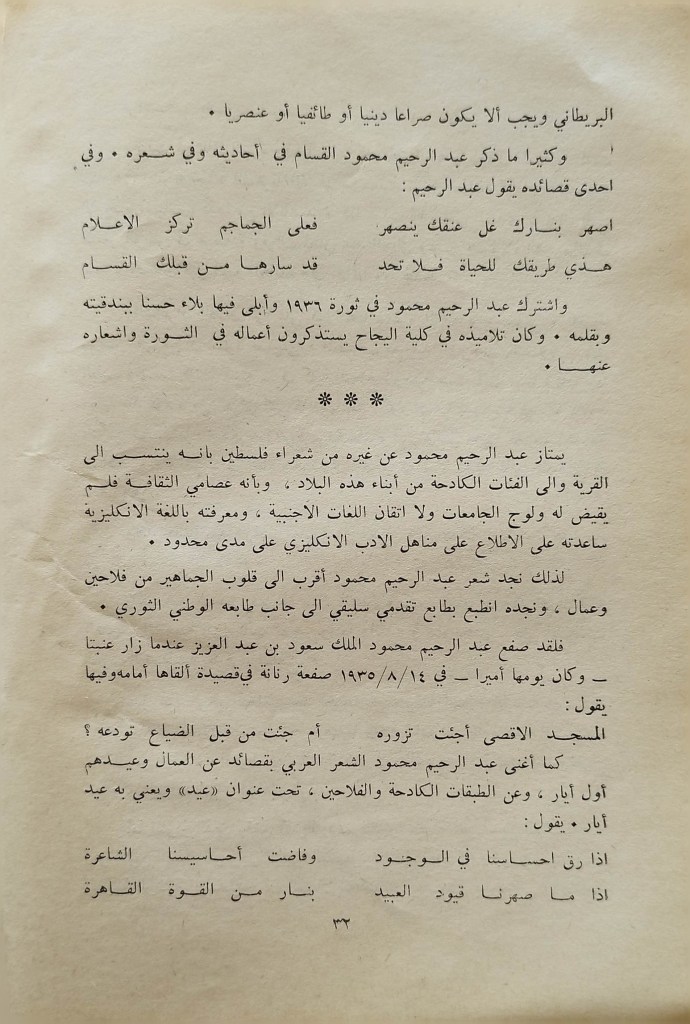 البريطاني ويجب ألا يكون صراعا دينيا أو طائفيا أو عنصريا ٠
وكثيرا ما ذكر عبد الرحيم محمود القسام في أحاديثه وفي شعره ٠ وفي
احدى قصائده يقول عبد الرحيم :
اصهر بنارك غل عنقك ينصهر فعلى الجماجم تركز الاعلام
هذي طريقك للحياة فلا تحد قد سارها من قبلك القسام
واشترك عبد الرحيم محمود في ثورة ١٩٣٦ وأبلى فيها بلاء حسنا ببندقيته
وبقلمه ٠ وكان تلاميذه في كلية اليجاح يستذكرون أعماله في الثورة واشعاره
عنها ٠
❊ ❊ ❊
يمتاز عبد الرحيم محمود عن غيره من شعراء فلسطين بانه ينتسب الى
القرية والى الفئات الكادحة من أبناء هذه البلاد ، وبأنه عصامي الثقافة فلم
يقيض له ولوج الجامعات ولا اتقان اللغات الاجنبية ، ومعرفته باللغة الانكليزية
ساعدته على الاطلاع على مناهل الادب الانكليزي على مدى محدود ٠
لذلك نجد شعر عبد الرحيم محمود أقرب الى قلوب الجماهير من فلاحين
وعمال ، ونجده انطبع بطابع تقدمي سليقي الى جانب طابعه الوطني الثوري ٠
فلقد صفع عبد الرحيم محمود الملك سعود بن عبد العزيز عندما زار عنبتا
ــ وكان يومها أميرا ــ في ١٩٣٥/٨/١٤ صفعة رنانة في قصيدة ألقاها أمامه وفيها
يقول :
المسجد الاقصى أجئت تزوره أم جئت من قبل الضياع تودعه ؟
كما أغنى عبد الرحيم محمود الشعر العربي بقصائد عن العمال وعيدهم
أول أيار ، وعن الطبقات الكادحة والفلاحين ، تحت عنوان «عيد» ويعني به عيد
أيار ٠ يقول :
اذا رق احساسنا في الوجود وفاضت أحاسيسنا الشاعرة
اذا ما صهرنا قيود العبيد بنار من القوة القاهرة
٣٢